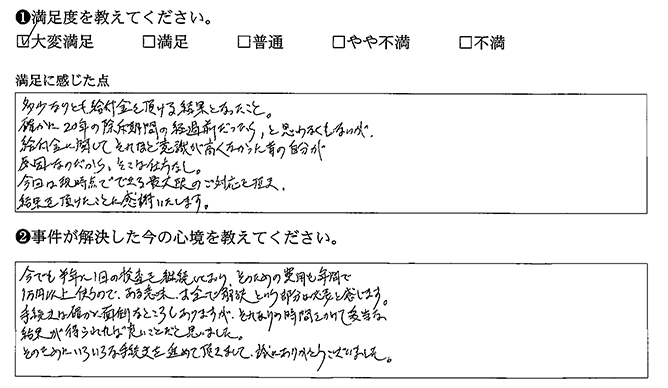 ❶満足度を教えてください。
☑大変満足 □満足 □普通 □やや不満 □不満
満足に感じた点
多少なりとも給付金を頂ける結果となったこと。
確かに20年の除斥期間の経過前だったら、と思わなくもないが、
給付金に関してそれほど意識が高くなかった昔の自分が
原因なのだから、そこは仕方なし。
今回は現時点でできる最大限のご対応を頂き、
結果を頂けたことに感謝いたします。
❷事件が解決した今の心境を教えてください。
今でも半年に1回の検査を継続しており、そのための費用も年間で
1万円以上使うので、ある意味、お金で解決という部分は必要と感じます。
手続きは確かに面倒なところもありますが、それなりの時間をかけて妥当な
結果が得られれば良いことだと思いました。
そのためにいろいろな手続きを進めて頂きまして、誠にありがとうございました。